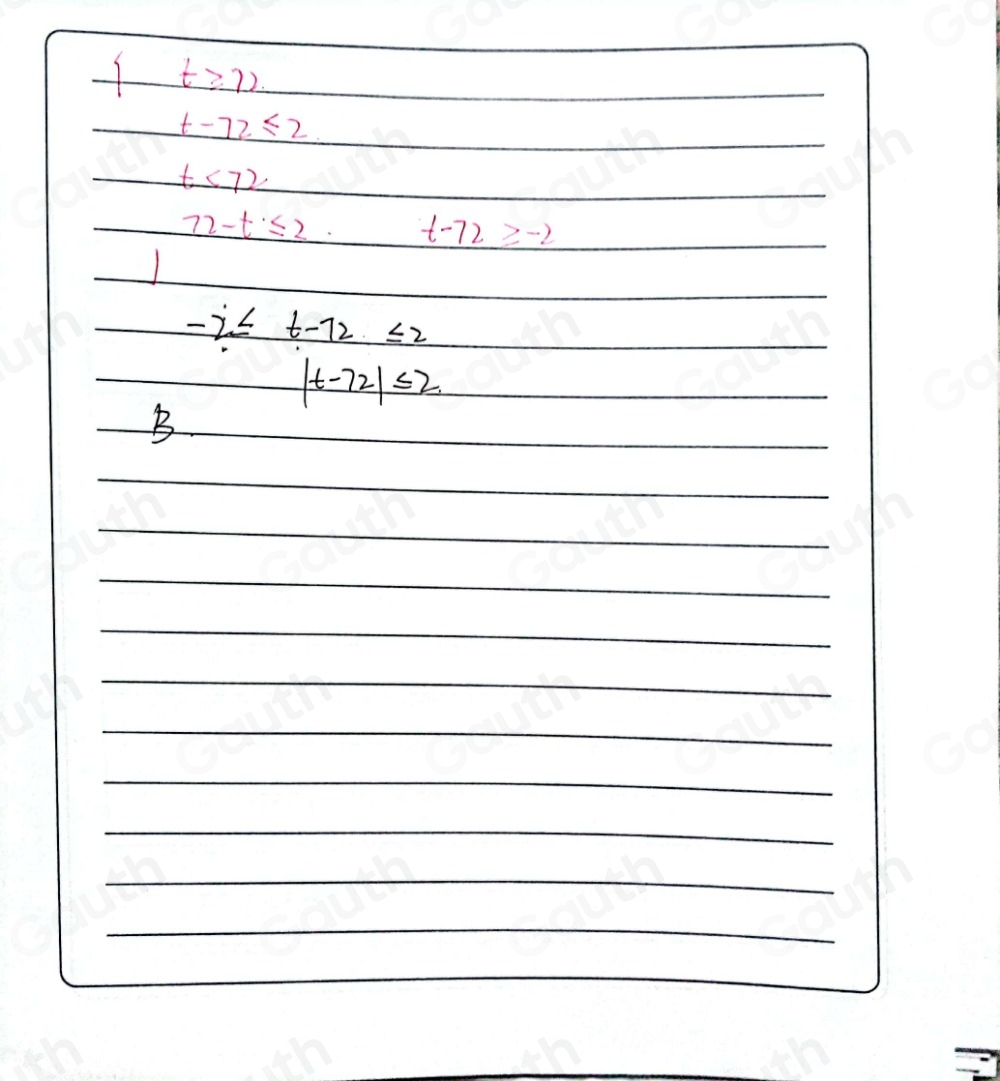 { t ≥ 72.
t - 72 ≤ 2.
t < 72
72 - t ≤ 2. t - 72 ≥ -2
-2 ≤ t - 72 ≤ 2
|t - 72| ≤ 2.
B.